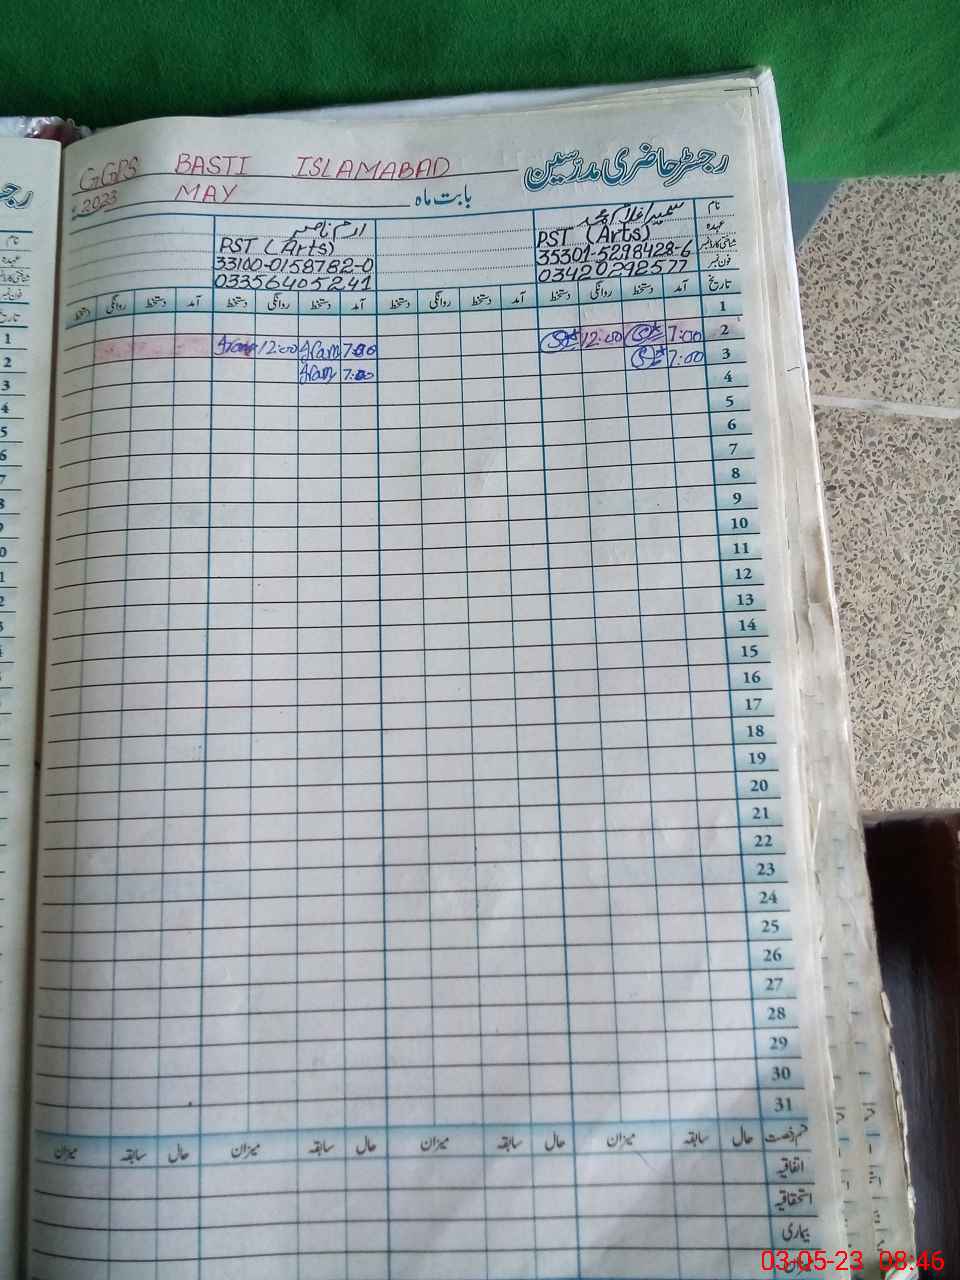 GGPS BASTI ISLAMABAD رجسٹر حاضری مدرسین
2023 MAY بابت ماہ
نام سمیرا غلام محمد ارم ناصر
عہدہ PST (Arts) PST (Arts)
شناختی کارڈ نمبر 35301-5218428-6 33100-0158782-0
فون نمبر 03420292577 03356405241
تاریخ آمد دستخط روانگی دستخط آمد دستخط روانگی دستخط آمد دستخط روانگی دستخط آمد دستخط روانگی دستخط
1
2 7:00 12:00 7:00 12:00
3 7:00 7:00
4
5
6
7
8
9
10
11
12
13
14
15
16
17
18
19
20
21
22
23
24
25
26
27
28
29
30
31
قسم رخصت حال سابقہ میزان حال سابقہ میزان حال سابقہ میزان حال سابقہ میزان
اتفاقیہ
استحقاقیہ
بیماری
03-05-23 08:46